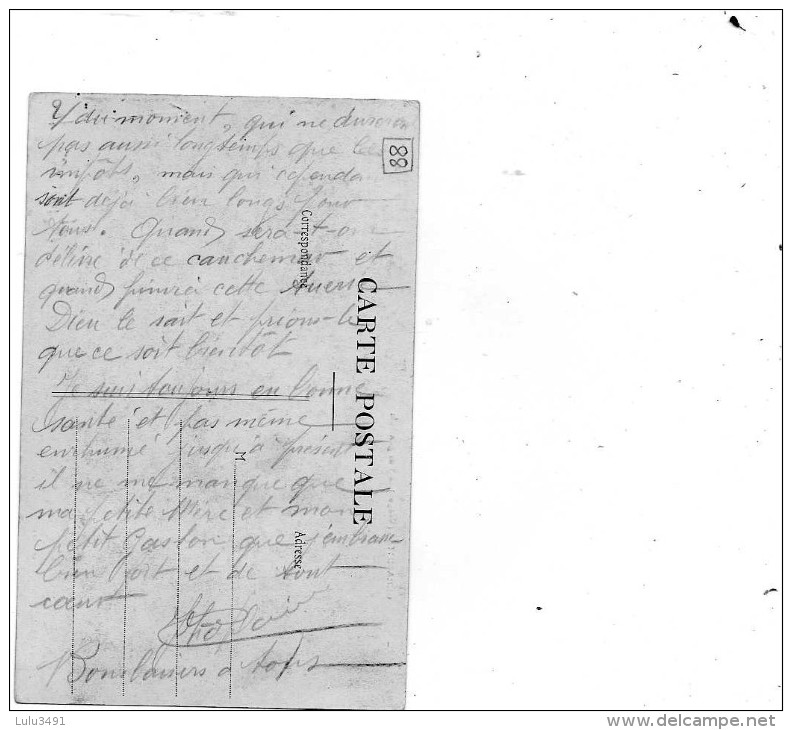 du moment, qui ne dureron
pas aussi longtemps que les
impôts, mais qui cependa
sont déjà bien longs pour
tous. Quand sera-t-on
délivré de ce cauchemar et
quand finira cette
Dieu le sait et prions-le
que ce soit bientôt
Je suis toujours en bonne
santé et pas même
enrhumé jusqu'à présent
il ne me manque que
ma petite Mère et mon
petit Gaston que j'embrasse
bien fort et de tout
cœur.
Bons baisers à tous
88
Correspondance
CARTE POSTALE
M
Adresse
Lulu3491
www.delcampe.net